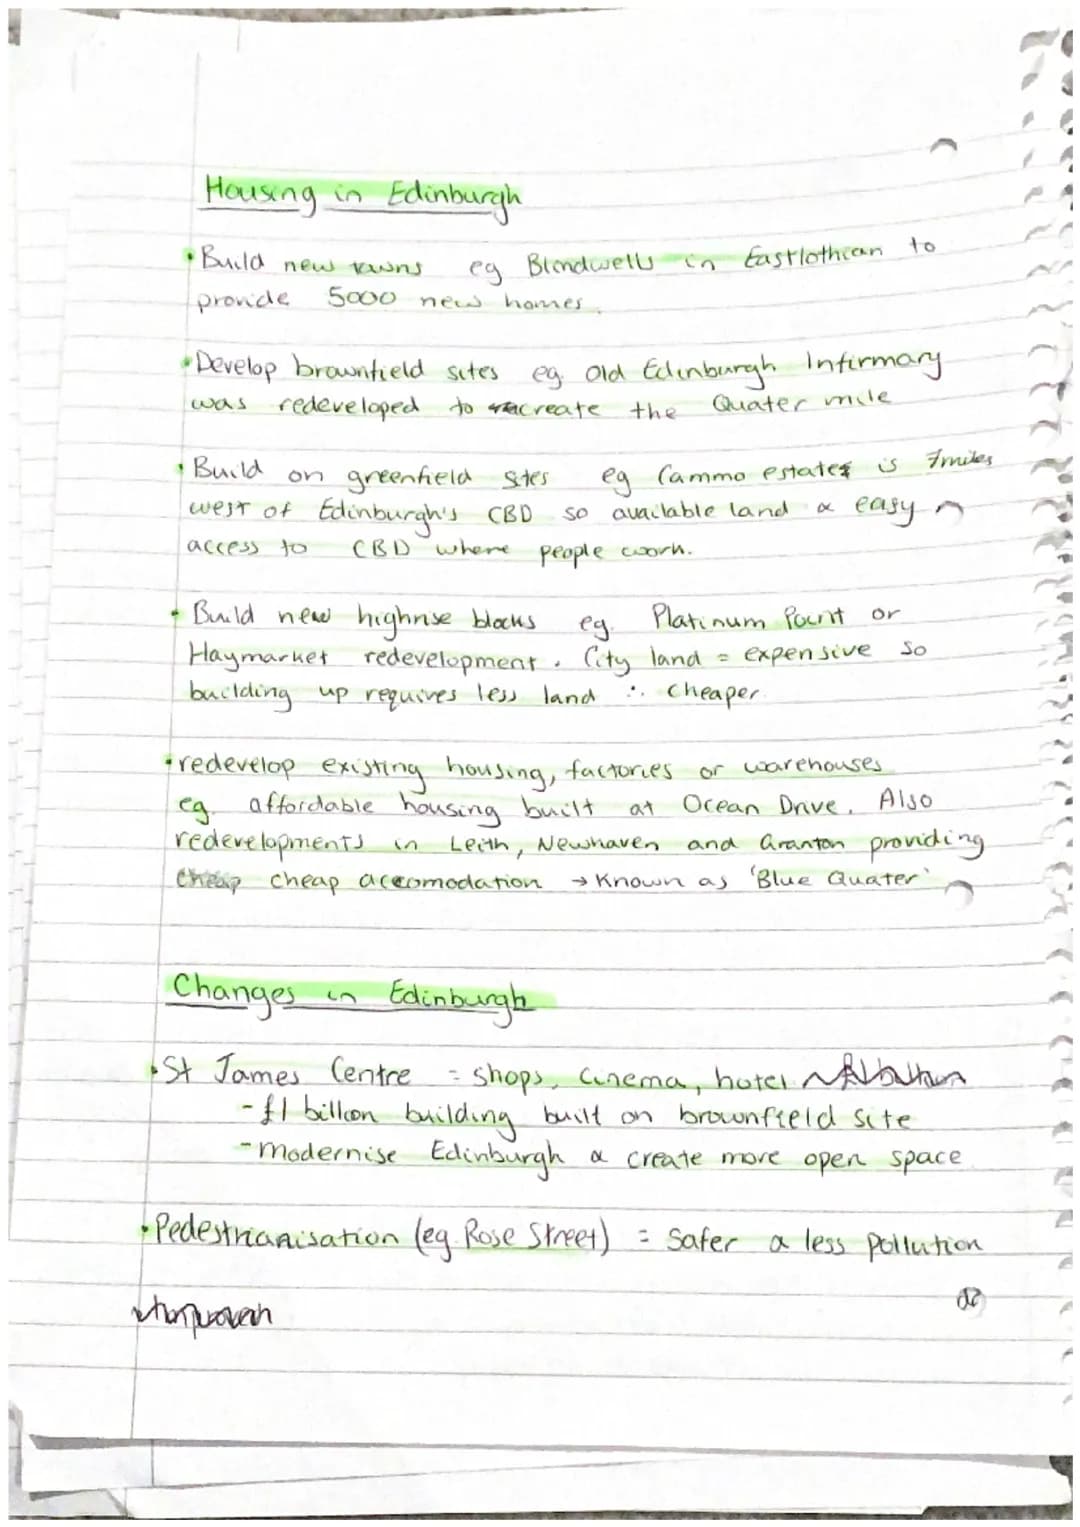 Housing in Edinburgh
• Build new towns eg Blindwells in Eastlothian to
provide 5000 new homes.
• Develop brownfield sites eg. Old Edinburgh Infirmary
was redeveloped to create the Quater mile
• Build on greenfield sites eg Cammo estates is 7miles
west of Edinburgh's CBD so available land & easy
access to CBD where people work.
• Build new highrise blocks eg. Platinum Point or
Haymarket redevelopment. City land = expensive so
building up requires less land ∴ cheaper.
• redevelop existing housing, factories or warehouses
eg. affordable housing built at Ocean Drive. Also
redevelopments in Leith, Newhaven and Granton providing
cheap cheap accomodation → Known as 'Blue Quater'
Changes in Edinburgh
• St James Centre = shops, cinema, hotel
- £1 billion building built on brownfield site
- modernise Edinburgh & create more open space
• Pedestrianisation (eg. Rose Street) = Safer & less pollution